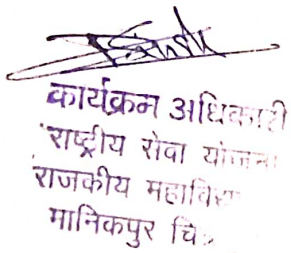 कार्यक्रम अधिकारी
राष्ट्रीय सेवा योजना
राजकीय
मानिकपुर